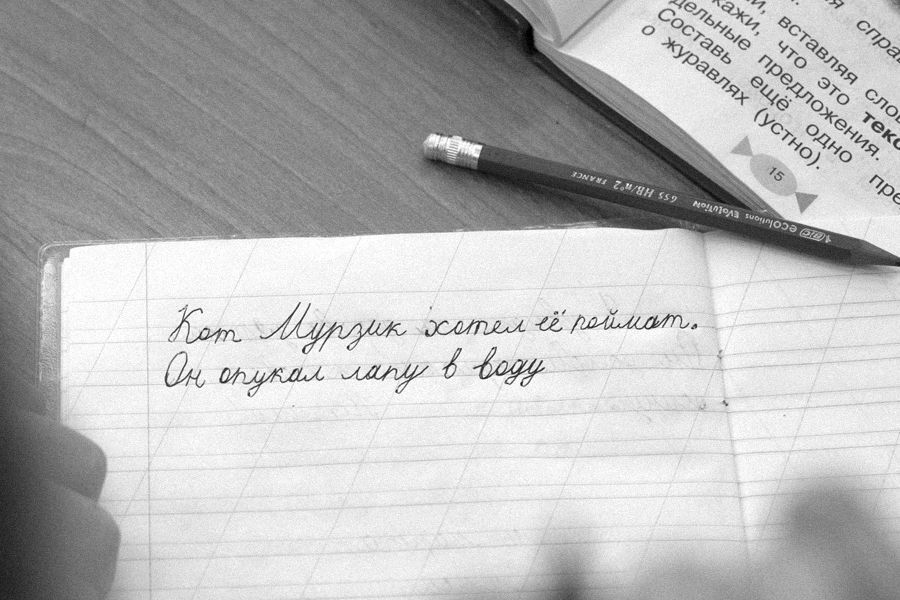 справ
вставляя слов
кажи, что это текс
дельные предложения.
Составь ещё одно пре
о журавлях (устно).
15
BIC ecolutions EVOLUTION 655 HB/n°2 FRANCE
Кот Мурзик хотел её поймат.
Он опукал лапу в воду